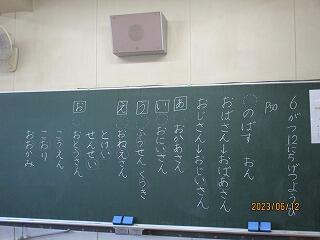 6がつ12にちげつようび
P50
のばす おん
おばさん→おばあさん
おじさん→おじいさん
あ おかあさん
い おにいさん
う ふうせん くうき
え おねえさん
とけい
せんせい
お おとうさん
こうえん
こおり
おおかみ
2023/06/12